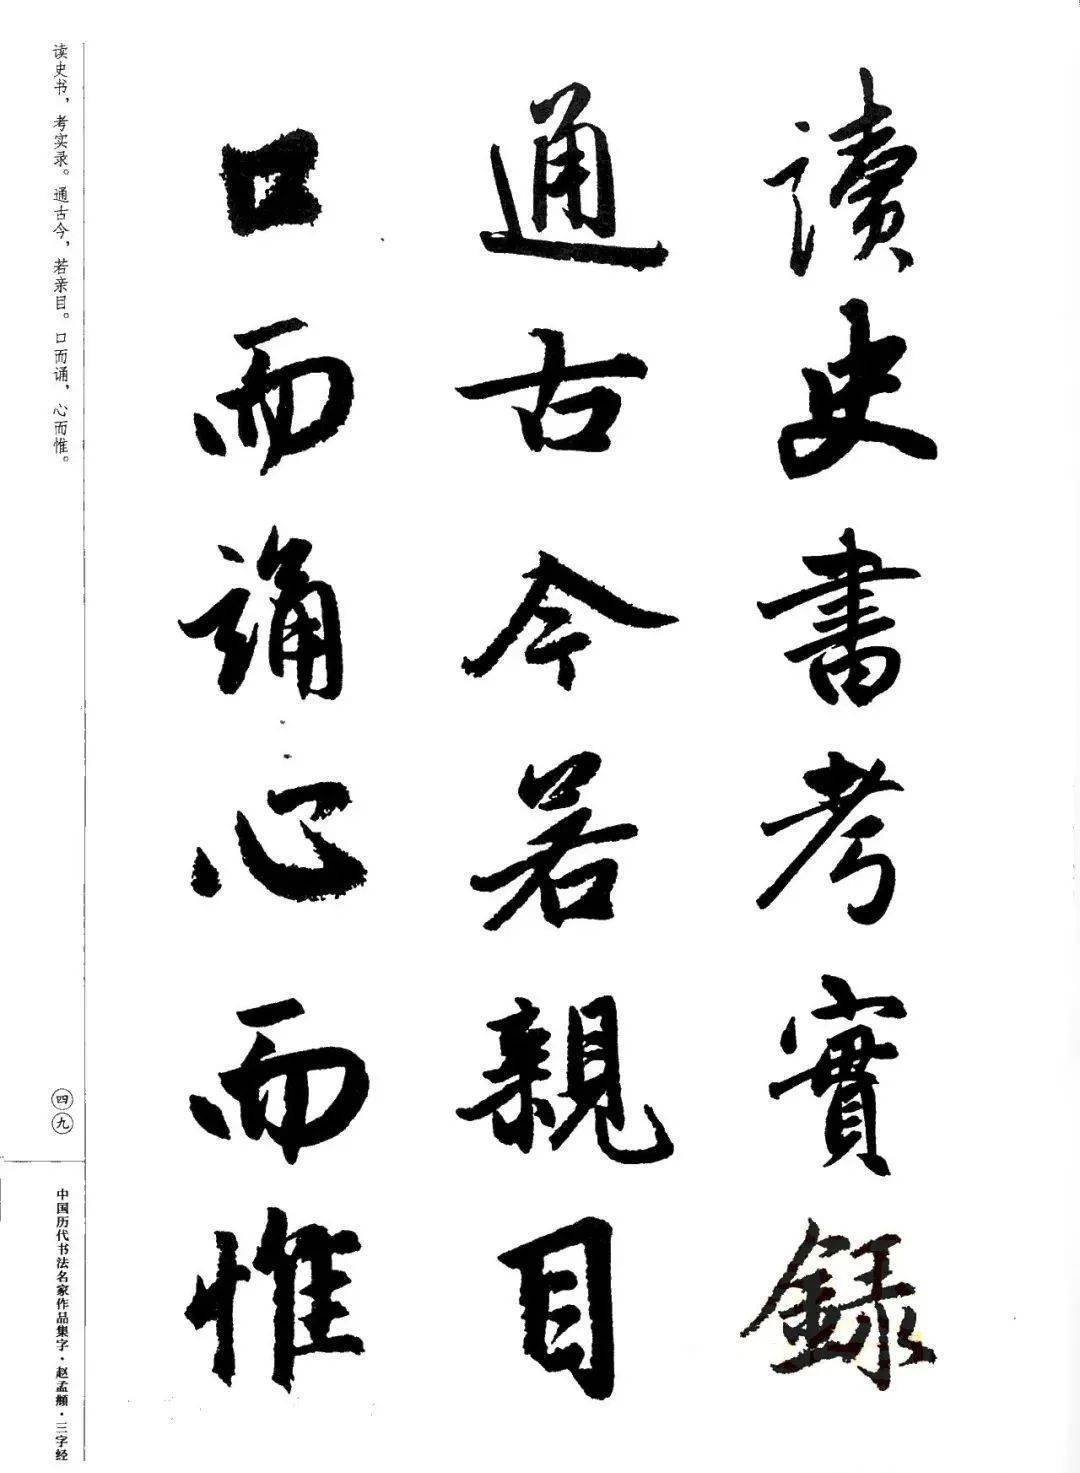 讀史書考實錄
通古今若親目
口而誦心而惟
读史书，考实录。通古今，若亲目。口而诵，心而惟。
四九
中国历代书法名家作品集字·赵孟頫·三字经